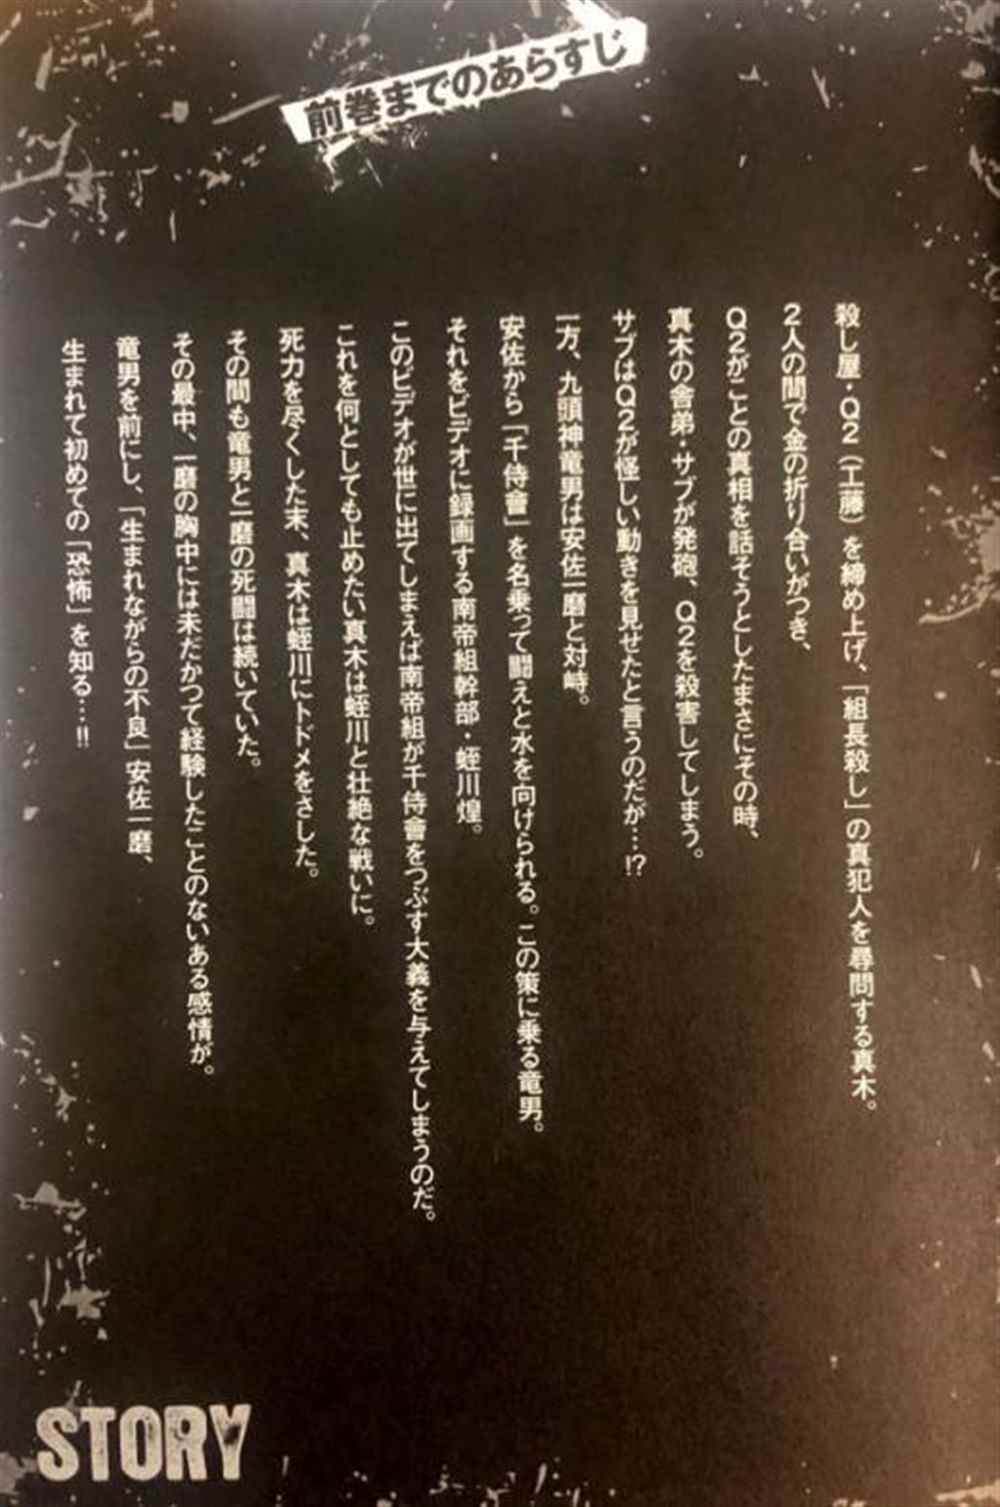 前巻までのあらすじ
殺し屋・Q2(工藤)を締め上げ、「組長殺し」の真犯人を尋問する真木。
2人の間で金の折り合いがつき、
Q2がことの真相を話そうとしたまさにその時、
真木の舎弟・サブが発砲、Q2を殺害してしまう。
サブはQ2が怪しい動きを見せたと言うのだが…!?
一方、九頭神竜男は安佐一磨と対峙。
安佐から「千侍會」を名乗って闘えと水を向けられる。この策に乗る竜男。
それをビデオに録画する南帝組幹部・蛭川煌。
このビデオが世に出てしまえば南帝組が千侍會をつぶす大義を与えてしまうのだ。
これを何としても止めたい真木は蛭川と壮絶な戦いに。
死力を尽くした末、真木は蛭川にトドメをさした。
その間も竜男と一磨の死闘は続いていた。
その最中、一磨の胸中には未だかつて経験したことのないある感情が。
竜男を前にし、「生まれながらの不良」安佐一磨、
生まれて初めての「恐怖」を知る…!!
STORY